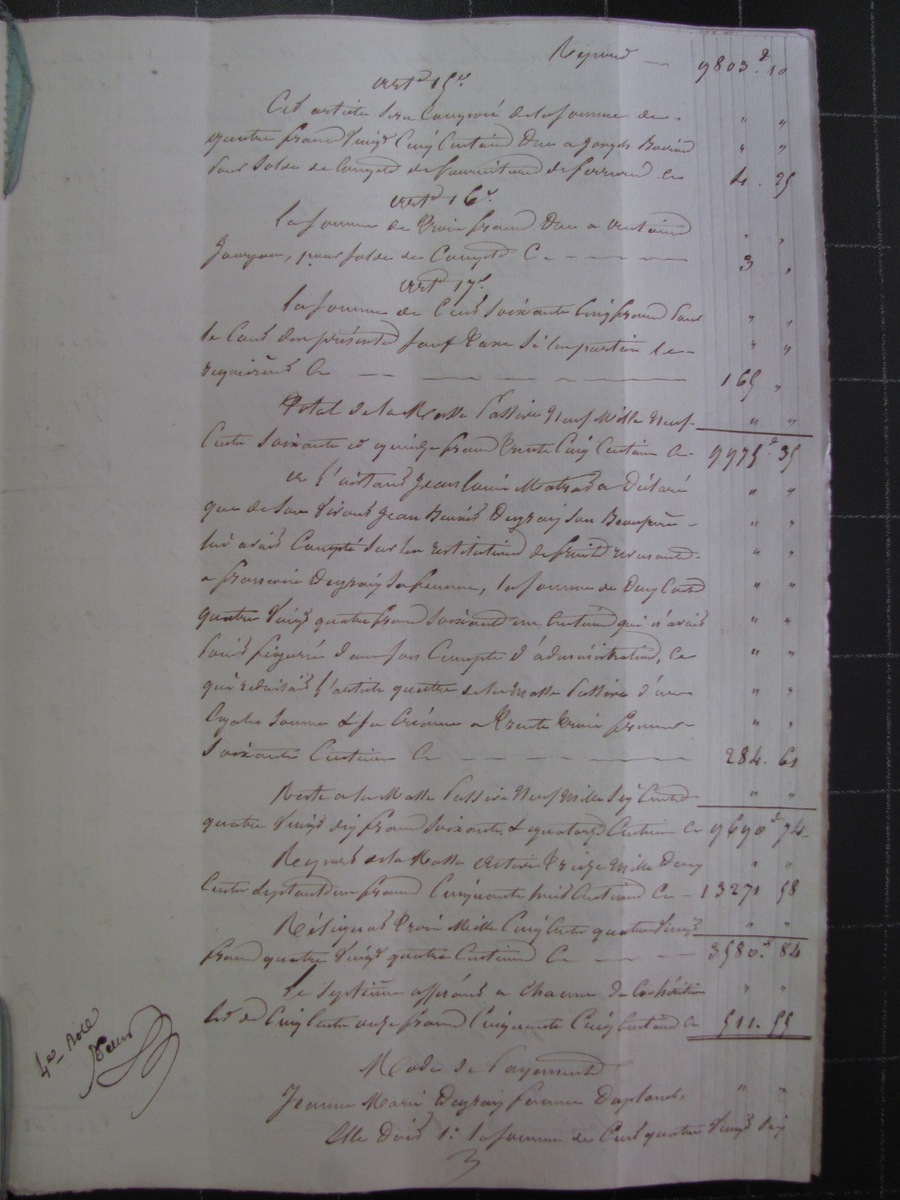 Report — 9803.f 10
Art.e 15.e
Cet article sera Composé de la somme de " "
quatre francs Vingt Cinq Centimes Due a Joseph " "
Pour Solde de Compte de fourniture de Ci 4. 25
Art.e 16.e
La somme de Trois francs Due a Antoine " "
pour solde de Compte Ci — 3 "
Art.e 17.e
La somme de Cent Soixante Cinq francs Pour " "
le Cout des présentes sauf Taxe si les parties le " "
requièrent Ci — 165 "
Total de la Masse Passive Neuf Mille Neuf " "
Cents Soixante et quinze francs Trente Cinq Centimes Ci 9975.f 35
a l'instant Jean Louis a Déclaré " "
que de Son Vivant Jean Son Beaupère " "
lui avait Compté Sur les restitutions de fruits revenant " "
a sa femme, la somme de Deux Cents " "
quatre Vingt quatre francs Soixante un Centimes qui n'avait " "
pas figuré dans son Compte d'administration, Ce " "
qui réduisait l'article quatre de la Masse Passive d'une " "
Egale Somme & sa Créance a Trente Trois francs " "
Soixante Centimes Ci — 284. 61
Reste a la Masse Passive Neuf Mille Six Cents " "
quatre Vingt dix francs Soixante & quatorze Centimes Ci 9690.f 74
la Masse Active Treize Mille Deux " "
Cents Septante un francs Cinquante huit Centimes Ci 13271 58
Trois Mille Cinq Cents quatre Vingt " "
francs quatre Vingt quatre Centimes Ci — 3580.f 84
Le Septième afférant a Chacun des Cohéritiers " "
est de Cinq Cents onze francs Cinquante Cinq Centimes Ci 511. 55
4.e Rôle
Mode de Payement
Jeanne Marie femme " "
Elle Doit 1.° la somme de Cent quatre Vingt Six